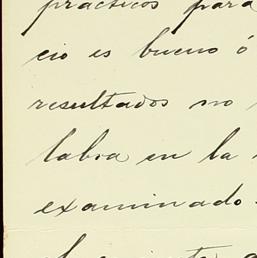 prácticos para
cio es bueno ó
resultados no
labra en la
examinado.